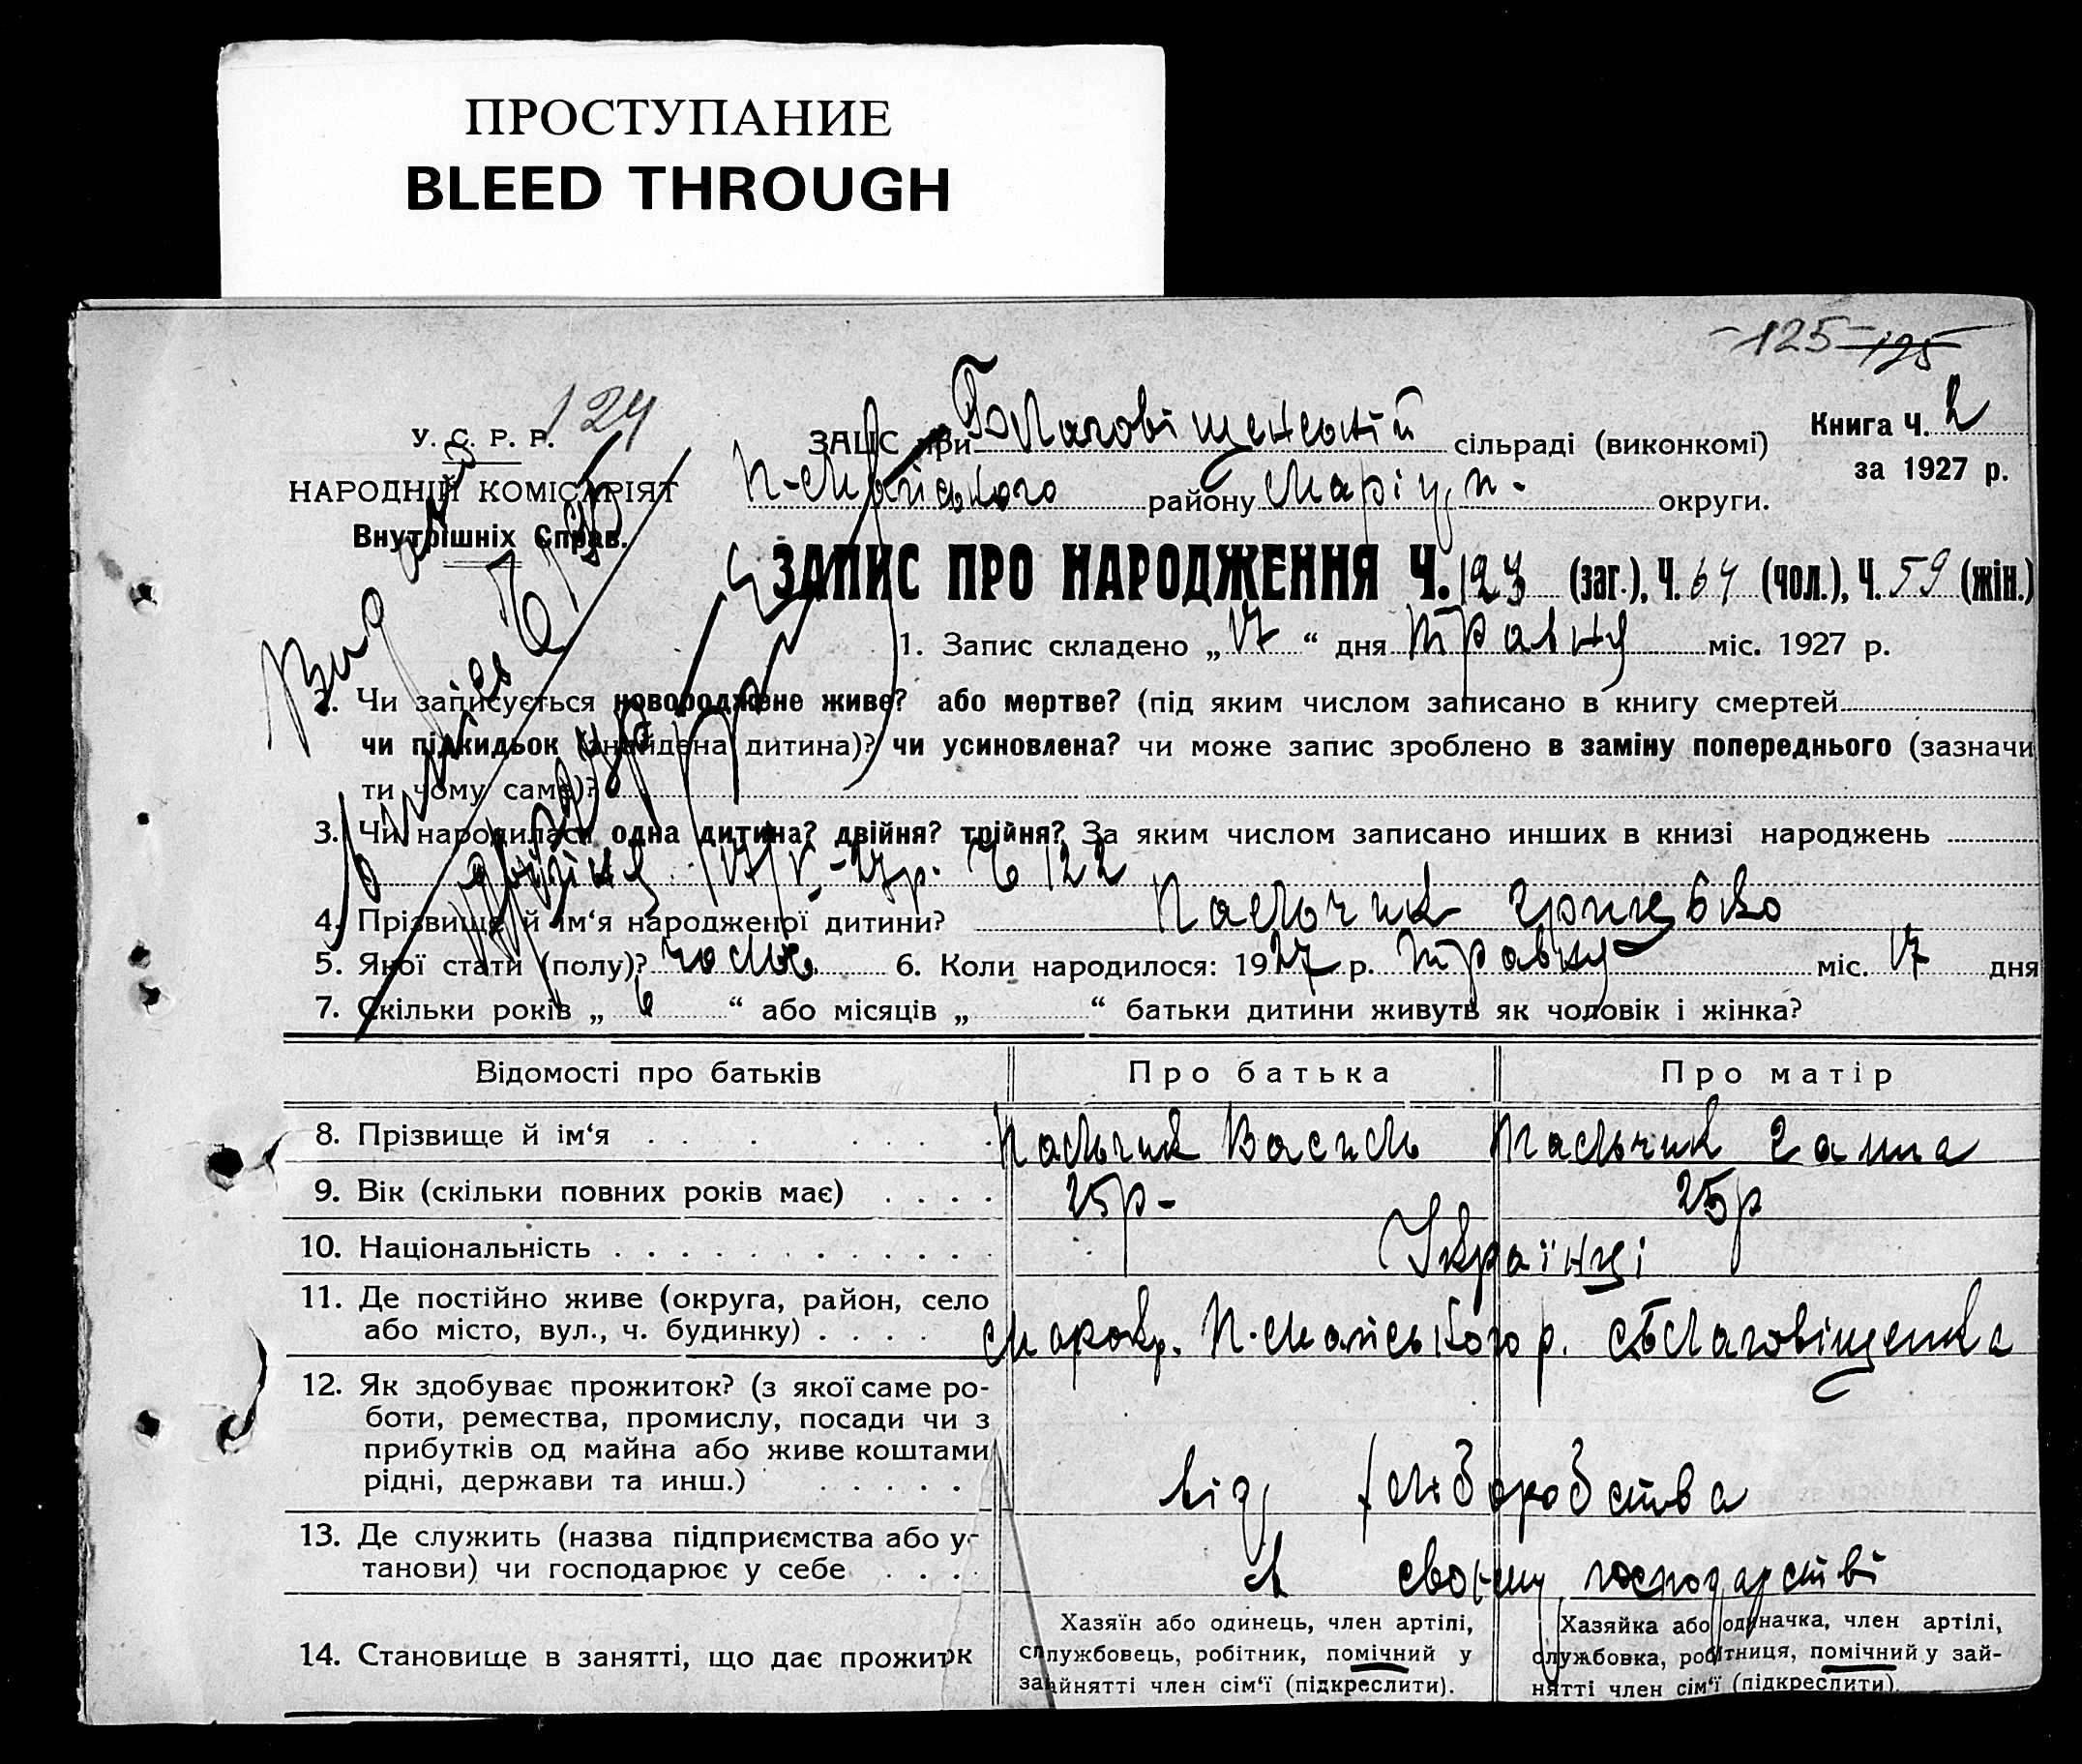 ПРОСТУПАНИЕ
BLEED THROUGH
-125- 125
124
У. С. Р. Р.
НАРОДНІЙ КОМІСАРІЯТ
Внутрішніх Справ.
ЗАЦС при Благовіщенській сільраді (виконкомі)
П-Майського району Маріуп- округи.
Книга Ч. 2
за 1927 р.
ЗАПИС ПРО НАРОДЖЕННЯ Ч. 123 (заг.), Ч. 64 (чол.), Ч. 59 (жін.)
1. Запис складено „17“ дня Травня міс. 1927 р.
2. Чи записується новороджене живе? або мертве? (під яким числом записано в книгу смертей
чи підкидьок (знайдена дитина)? чи усиновлена? чи може запис зроблено в заміну попереднього (зазначи
ти чому саме)?
3. Чи народилася одна дитина? двійня? трійня? За яким числом записано инших в книзі народжень
двійня 17/V-27р. Ч 122
4. Прізвище й ім‘я народженої дитини? Пальчик Грицько
5. Якої стати (полу)? чоло 6. Коли народилося: 1927 р. Травня міс. 17 дня
7. Скільки років „ 6 “ або місяців „ “ батьки дитини живуть як чоловік і жінка?
Відомості про батьків Про батька Про матір
8. Прізвище й ім‘я Пальчик Василь Пальчик Ганна
9. Вік (скільки повних років має) 25р- 25р
10. Національність Українці
11. Де постійно живе (округа, район, село
або місто, вул., ч. будинку) Марокр. П-Майського р. с Благовіщенка
12. Як здобуває прожиток? (з якої саме ро-
боти, ремества, промислу, посади чи з
прибутків од майна або живе коштами
рідні, держави та инш.) від хліборобства
13. Де служить (назва підприємства або у-
танови) чи господарює у себе в своєму господарстві
14. Становище в занятті, що дає прожиток
Хазяїн або одинець, член артілі,
службовець, робітник, помічний у
зайнятті член сім‘ї (підкреслити).
Хазяйка або одиначка, член артілі,
службовка, робітниця, помічний у зай-
нятті член сім‘ї (підкреслити)